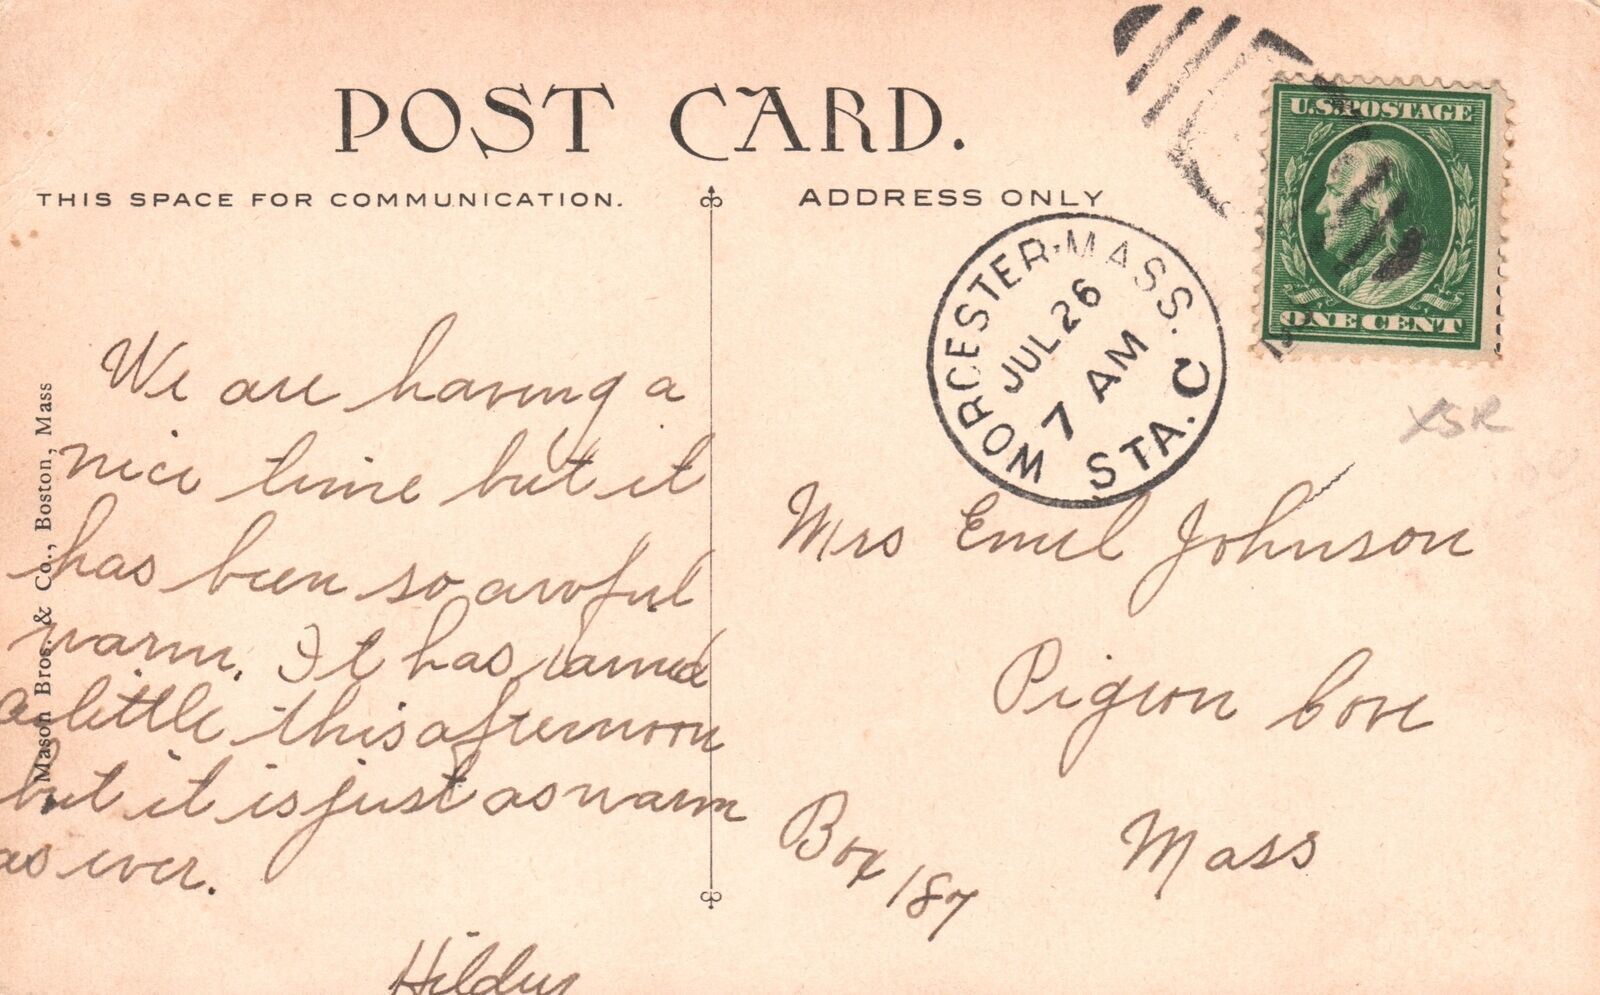 POST CARD.
THIS SPACE FOR COMMUNICATION.
ADDRESS ONLY
U.S. POSTAGE
ONE CENT
WORCESTER, MASS.
JUL 26
7 AM
STA. C
Mason Bros. & Co., Boston, Mass
We are having a
nice time but it
has been so awful
warm. It has rained
a little this afternoon
but it is just as warm
as ever.
Mrs Emil Johnson
Pigeon Cove
Mass
Box 187